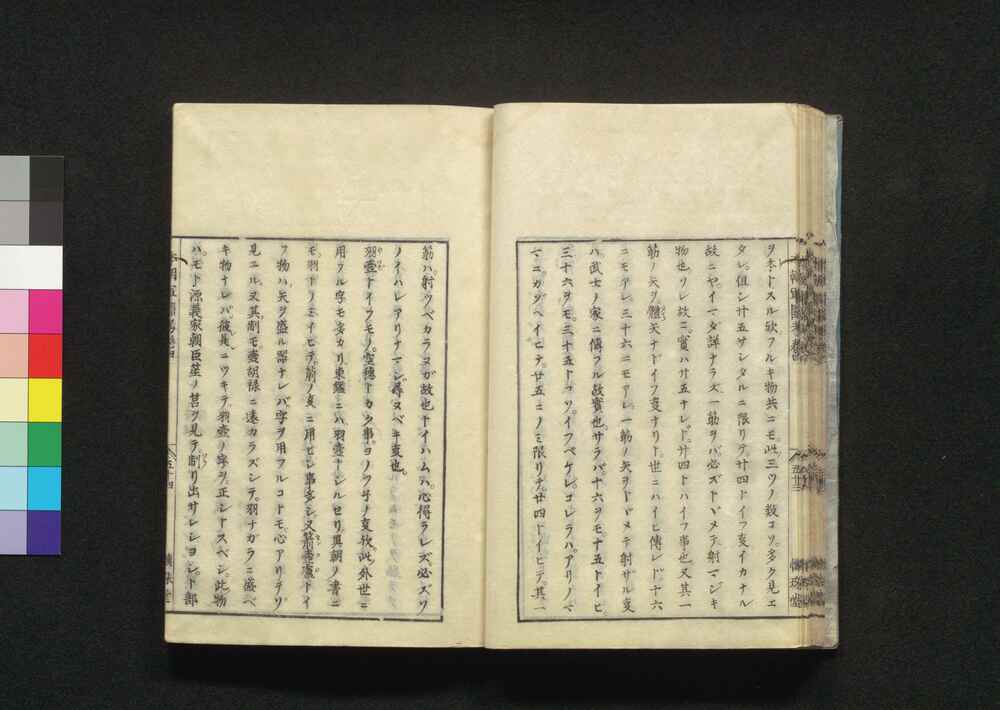 ヲ本トスル歟フルキ物共ニモ此三ツノ数コソ多ク見エ
タレ但シ廿五サシタルニ限リテ廿四トイフ叓イカナル
故ニヤイマダ詳ナラズ一筋ヲバ必ズトヾメテ射マジキ
物也ソレ故ニ實ハ廿五ナレドモ廿四トハイフ事也又其一
筋ノ矢ヲ體矢ナドイフ叓ナリト世ニハイヒ傳レド十六
ニモアレ三十六ニモアレ一筋ノ矢ヲトヾメテ射ザル叓
ハ武士ノ家ニ傳フル故實也サラバ十六ヲモ十五トイヒ
三十六ヲモ三十五トコソイフベケレコレラハアリノ
マコカゾヘイヒテ廿五ニノミ限リテ廿四トイヒテ其一
五十三
筋ハ射ツベカラヌガ故也トイハムハ心得ラレズ必ズソ
ノイハレアリナマシ尋ヌベキ叓也
羽壺トイフモノ空穂トカク事ヨノツ子ノ叓歟此外世ニ
用フル字モ姿カリ東鑑ニハ羽壺トシルセリ異朝ノ書ニ
モ羽トノミイヒテ箭ノ叓ニ用ヒシ事多シ又箭壺トイ
フ物ハ矢ヲ盛ル器ナレバ字ヲ用フルコトモ心アリテゾ
見ユル又其制モ壺胡禄ニ遠カラズシテ羽ナガラニ盛ベ
キ物ナレバ彼是ニツキテ羽壺ノ字ヲ正シトスベシ此物
ハモト源義家朝臣莖ノ筥ヲ見テ制リ出サレシヨシト部
五十四